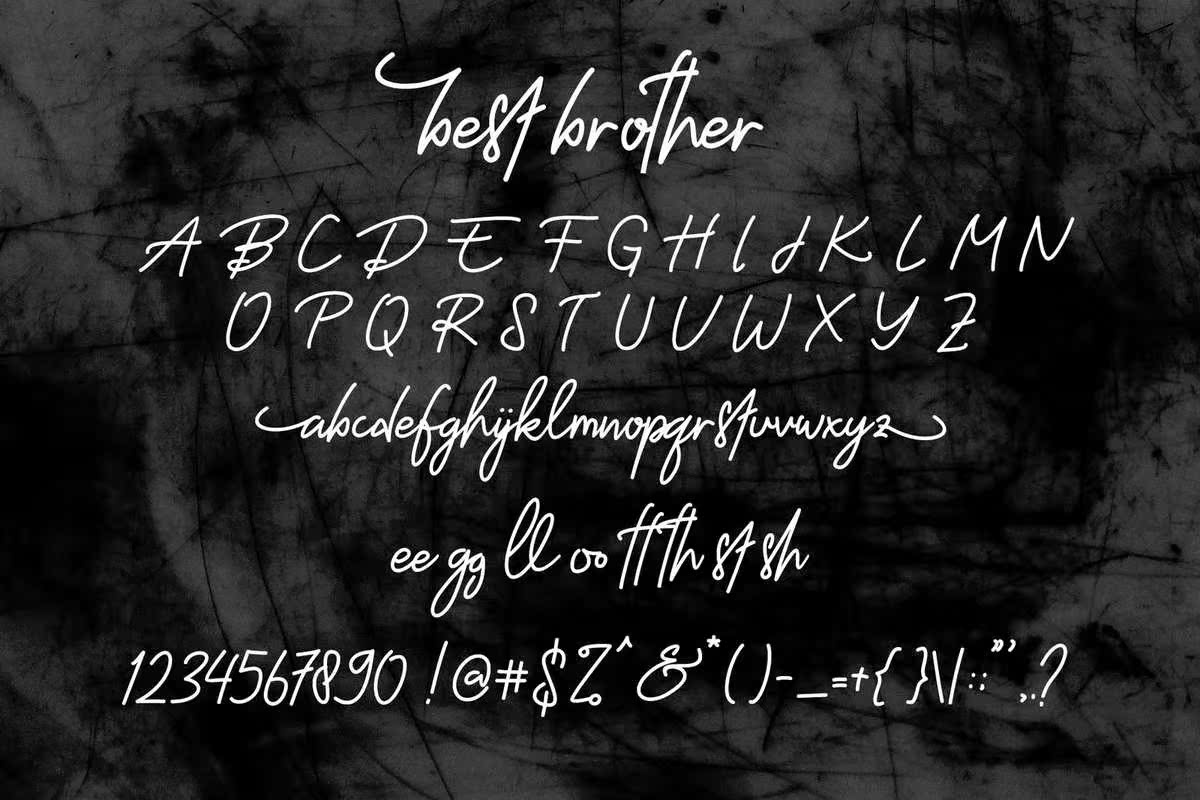 best brother
A B C D E F G H I J K L M N
O P Q R S T U V W X Y Z
abcdefghijklmnopqrstuvwxyz
ee gg ll oo tt th st sh
1234567890 ! @ # $ % ^ & * ( ) - _ = + { } \ | : ; " ' , . ?